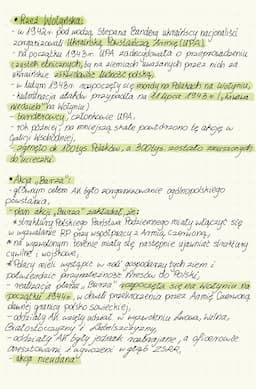 • Rzeź Wołyńska:
- w 1942 r. pod wodzą Stepana Bandery ukraińscy nacjonaliści
zorganizowali Ukraińską Powstańczą Armię (UPA)
- na początku 1943 r. UPA zadecydowała o przeprowadzeniu
czystek etnicznych, by na ziemiach uważanych przez nich za
ukraińskie zlikwidować ludność polską,
- w lutym 1943 r. rozpoczęły się mordy na Polakach na Wołyniu,
- kulminacja ataków przypadła na 11 lipca 1943 r. („krwawa
niedziela” na Wołyniu)
- banderowcy, członkowie UPA
- rok później, na mniejszą skalę powtórzono tę akcję w
Galicji Wschodniej,
- zginęło ok. 100 tys. Polaków, a 300 tys. zostało zmuszonych
do ucieczki
• Akcja „Burza”:
- głównym celem AK było zorganizowanie ogólnopolskiego
powstania,
- plan akcji „Burza” zakładał, że:
* struktury Polskiego Państwa Podziemnego miały włączyć się
w wyzwalanie RP przy współpracy z Armią Czerwoną,
* na wyzwolonym terenie miały się następnie ujawniać struktury
cywilne i wojskowe,
* Polacy mieli wystąpić w roli gospodarzy tych ziem i
potwierdzić przynależność Kresów do Polski,
- realizacja planu „Burza” rozpoczęła się na Wołyniu na
początku 1944 r., w chwili przekroczenia przez Armię Czerwoną
dawnej granicy polsko-sowieckiej,
- oddziały AK wzięły udział w wyzwoleniu Lwowa, Wilna,
Białostocczyzny i Lubelszczyzny,
- oddziały AK były jednak rozbrajane, a oficerowie
aresztowani i wywożeni w głąb ZSRR,
- akcja nieudana